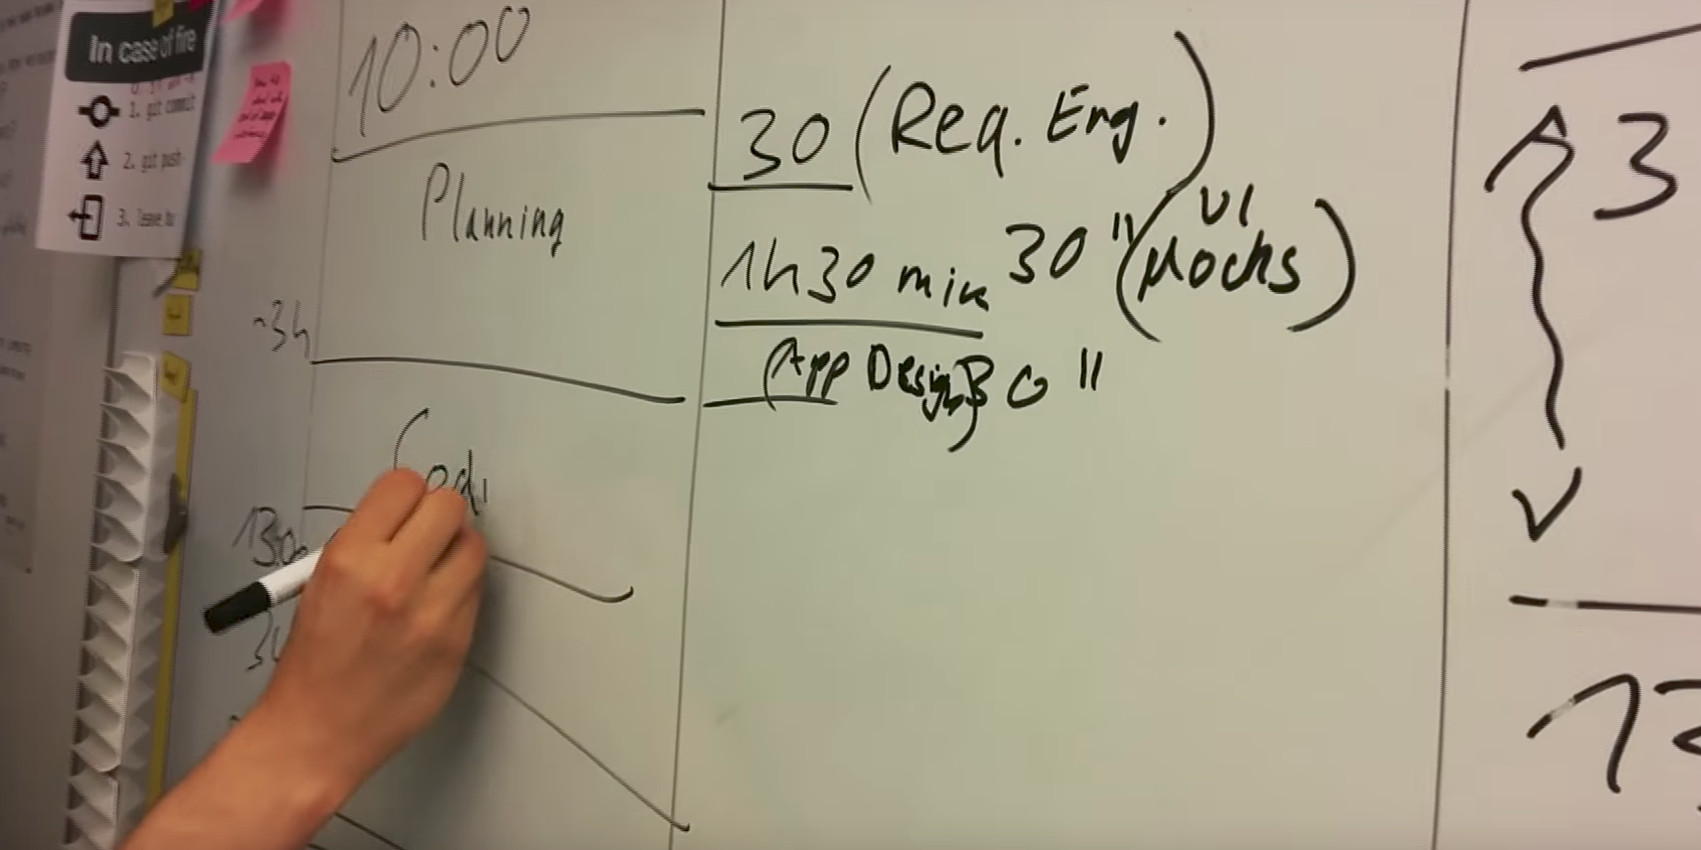 In case of fire
1. git commit
2. git push
3. leave bu
10:00
Planning
~3h
Codi
1300
30 (Req. Eng.)
1h30 min 30" (UI Mocks)
(App Design) 30"
3